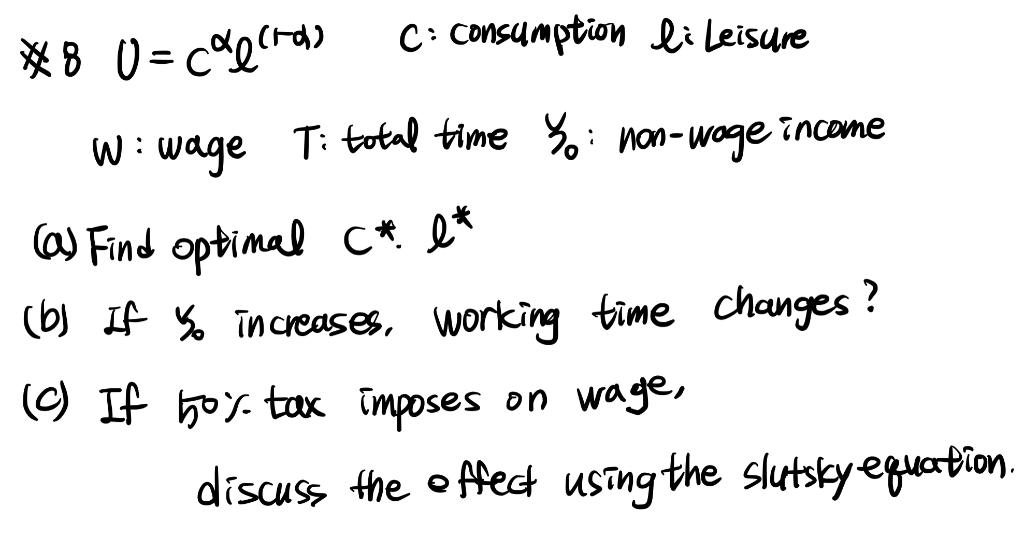 ※8 U = c^α l^(1-α) C: consumption l: Leisure
W: wage T: total time y₀: non-wage income
(a) Find optimal C*. l*
(b) If y₀ increases, working time changes?
(c) If 50% tax imposes on wage,
discuss the effect using the slutsky equation.